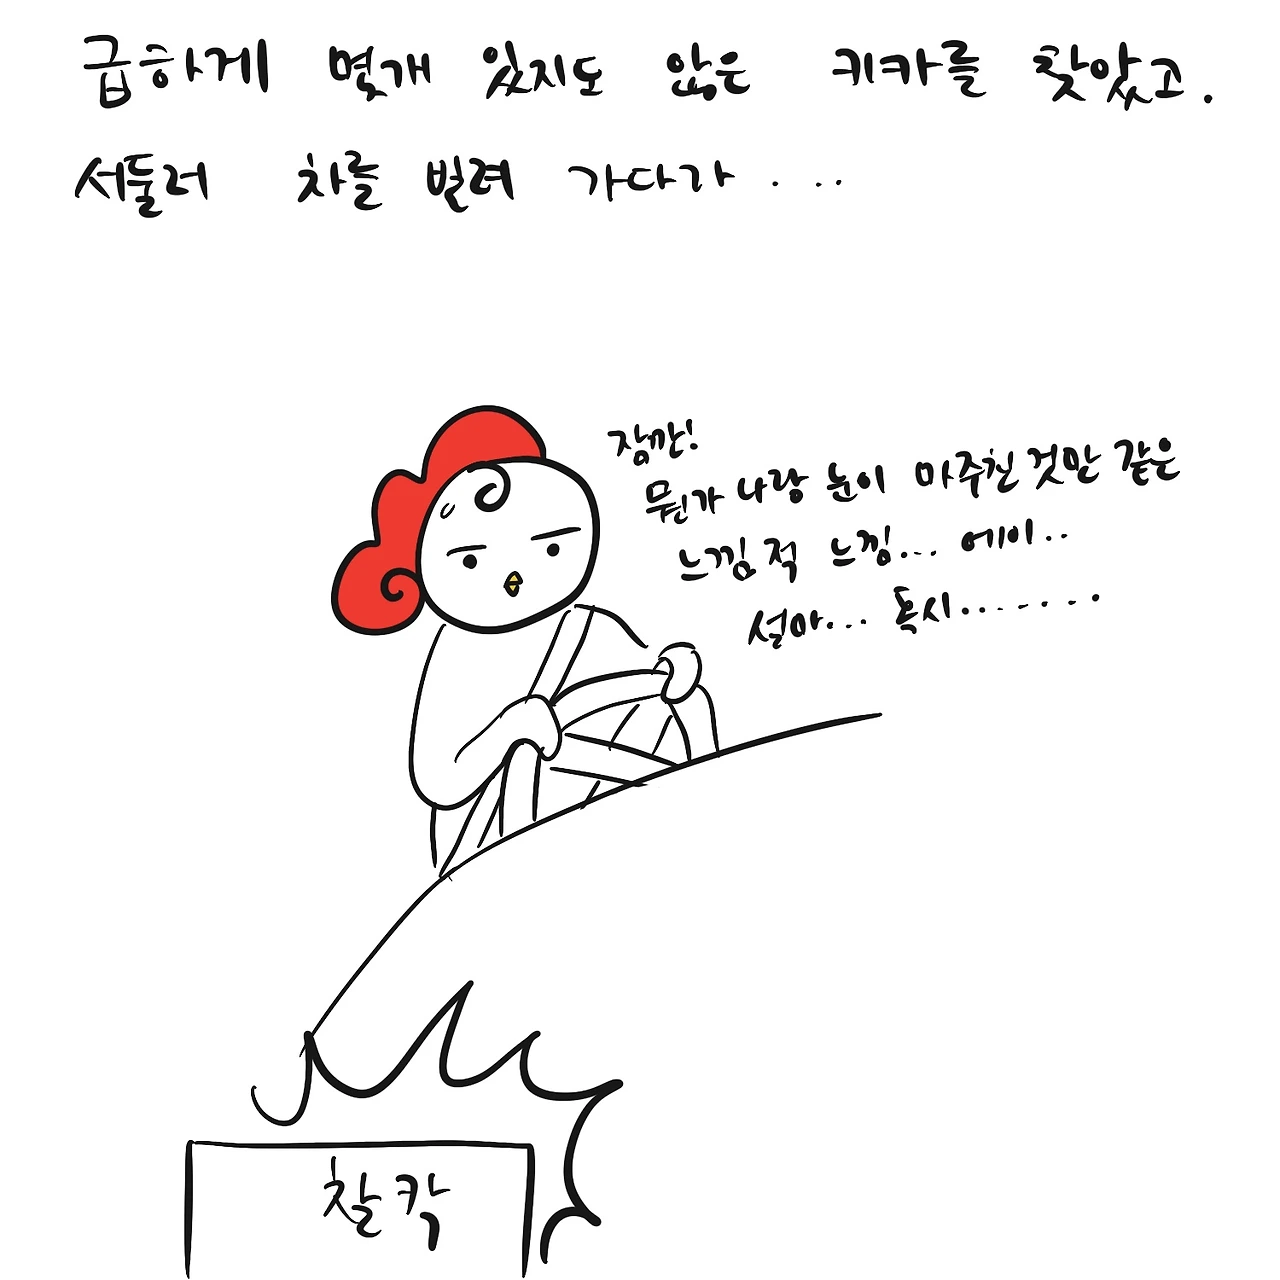 급하게 몇개 있지도 않은 키카를 찾았고.
서둘러 차를 빌려 가다가 . ..
잠깐!
뭔가 나랑 눈이 마주친 것만 같은
느낌적 느낌... 에이..
설마... 혹시.......
찰칵